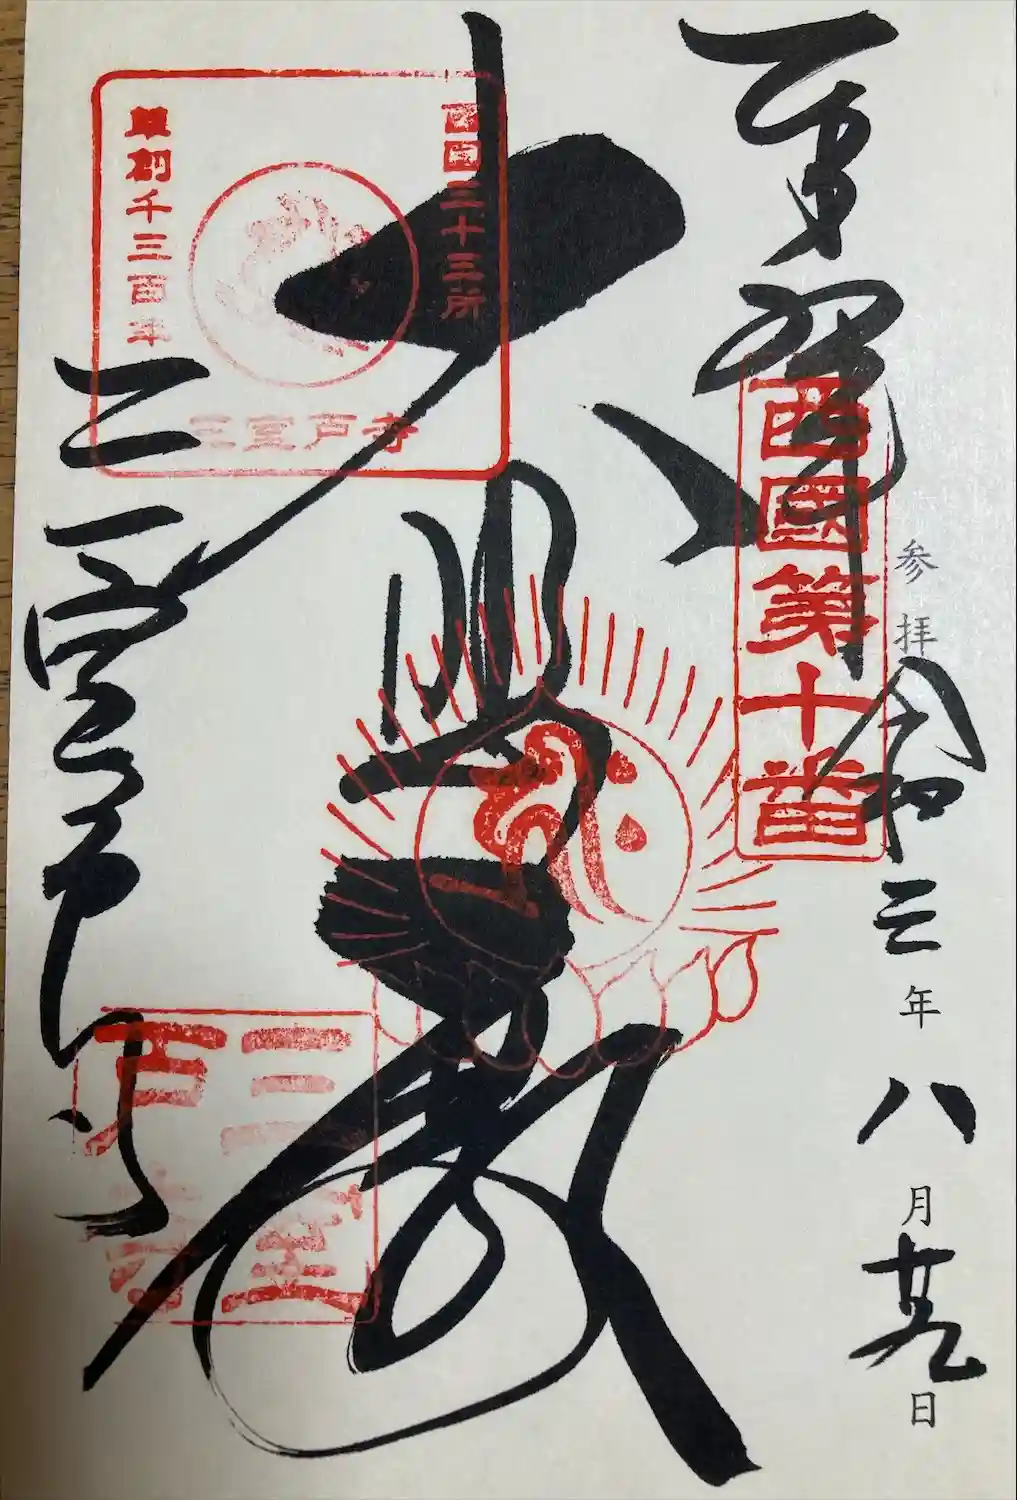 奉拝
西國第十番
参拝
令和三年八月廿九日
大悲殿
西国三十三所
草創千三百年
三室戸寺
三室戸寺
三室戸寺